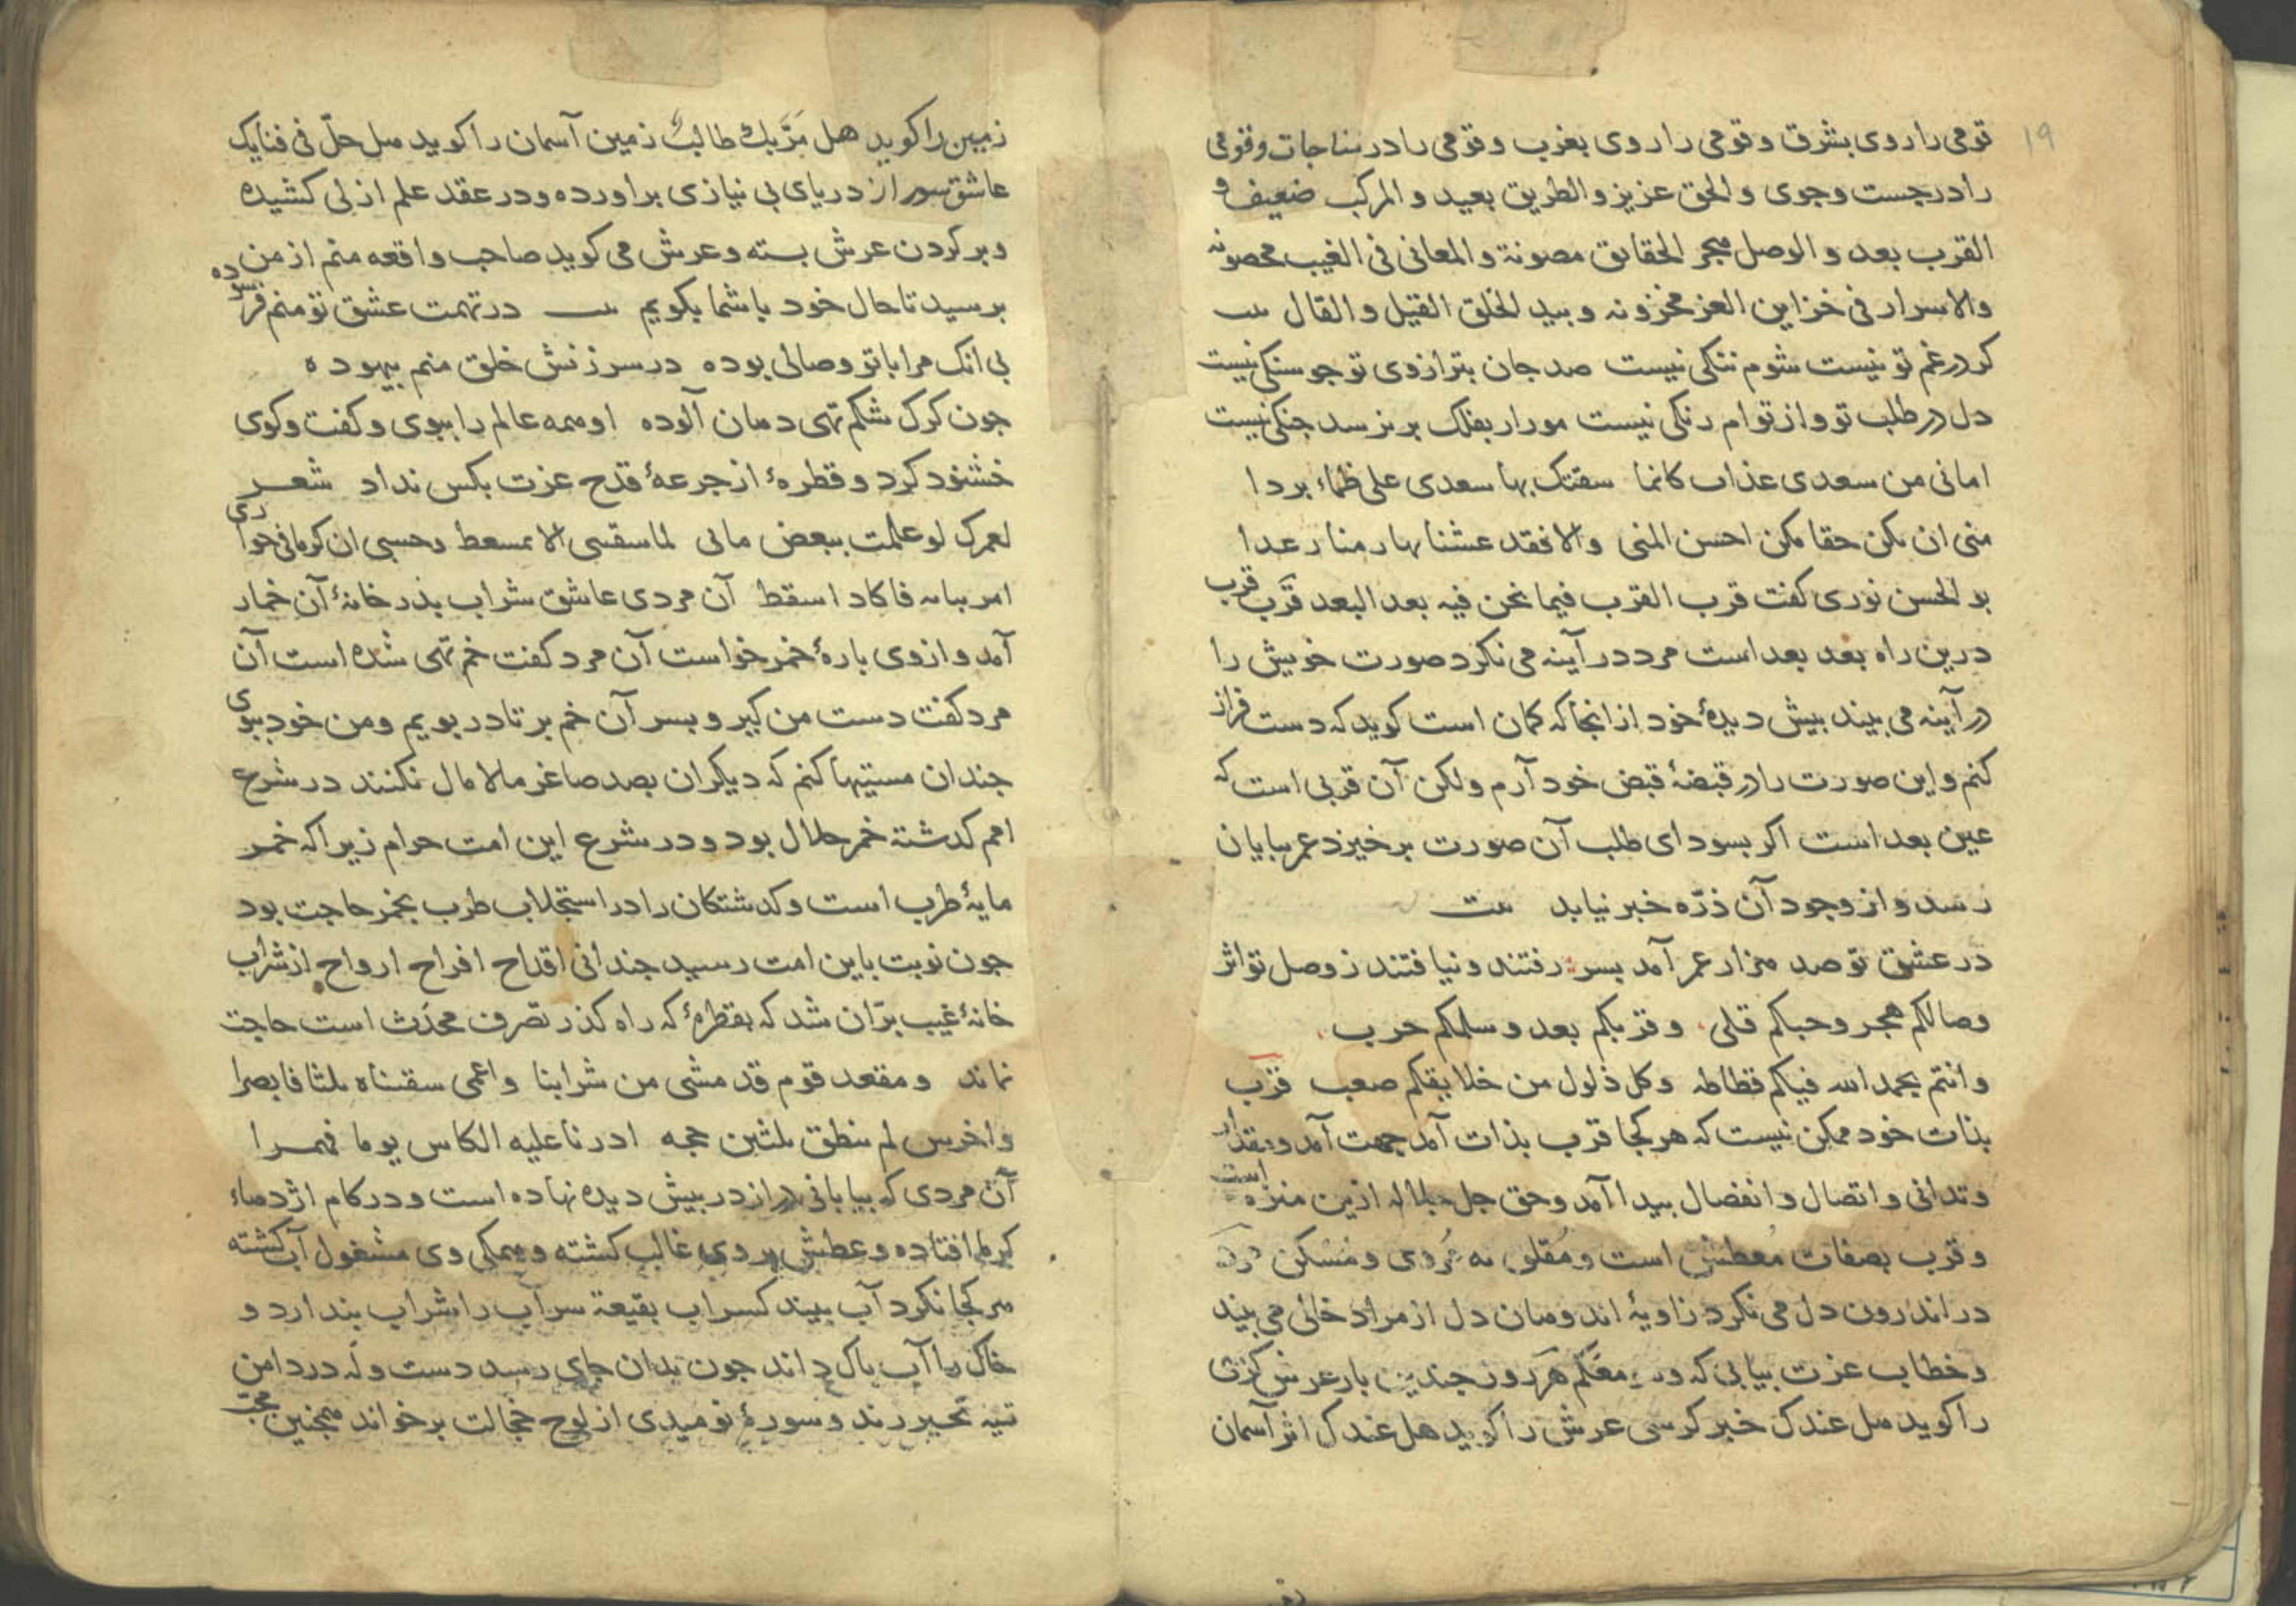 ۱۹
قومی را روی بشرق و قومی را روی بغرب و قومی را در مناجات و قومی
را در جست و جوی و الحق عزیز و الطریق بعید و المرکب ضعیف و
القرب بعد و الوصل هجر الحقایق مصونة و المعانی فی الغیب محصونه
والاسرار فی خزاین العز مخزونه و بید الخلق القیل و القال ست
کر در غم تو نیست شوم ننکی نیست صد جان بترازوی تو جو سنکی نیست
دل در طلب تو و از توام رنکی نیست مور ار بفلک بر نرسد جنکی نیست
امانی من سعدی عذاب کانما سقتک بها سعدی علی ظماء بردا
منی ان تکن حقا تکن احسن المنی والا فقد عشنا بها زمنا رغدا
بو الحسن نوری کفت قرب القرب فیما نحن فیه بعد البعد قرب قرب
درین راه بعد بعد است مرد در آینه می نکرد صورت خویش را
در آینه می بیند بیش دیدهٔ خود از انجا که کمان است کوید که دست فراز
کنم و این صورت را در قبضهٔ قبض خود آرم ولکن آن قربی است که
عین بعد است اکر بسودای طلب آن صورت برخیزد عمر ببایان
رسد و از وجود آن ذرّه خبر نیابد ست
در عشق تو صد هزار عمر آمد بسر رفتند و نیافتند ز وصل تو اثر
وصالکم هجر و حبکم قلی و قربکم بعد و سلمکم حرب
و انتم بحمد الله فیکم فظاظه و کل ذلول من خلایقکم صعب قرب
بذات خود ممکن نیست که هر کجا قرب بذات آمد جهت آمد و مقدار
و تدانی و اتصال و انفصال بیدا آمد و حق جل جلاله ازین منزه است
و قرب بصفات معطش است و مقلق نه مروی و مسکن
در اندرون دل می نکرد زاویهٔ اندوهان دل از مراد خالی می بیند
و خطاب عزت بیابی که معکم هر روز جندین بار عرش کرسی
را کوید هل عندک خبر کرسی عرش را کوید هل عندک اثر آسمان
زمین را کوید هل مرّ بک طالب زمین آسمان را کوید هل حلّ فی فنایک
عاشق از دریای بی نیازی براورده و در عقد علم ازلی کشیده
و بر کردن عرش بسته و عرش می کوید صاحب واقعه منم از من
برسید تا حال خود با شما بکویم ست در تهمت عشق تو منم فرسوده
بی انک مرا با تو وصالی بوده در سرزنش خلق منم بیهوده
جون کرک شکم تهی دهان آلوده او همه عالم را ببوی و کفت و کوی
خشنود کرد و قطرهٔ از جرعهٔ قدح عزت بکس نداد شعر
لعمرک لو علمت ببعض مابی لما سقسی الا بمسعط و حسبی ان کرمانی خواری
امر ببابه فاکاد اسقط آن مردی عاشق شراب بدر خانهٔ آن خمار
آمد و از وی بارهٔ خمر خواست آن مرد کفت خم تهی شده است آن
مرد کفت دست من کیر و بسر آن خم بر تا در بویم و من خود ببوی
جندان مستیها کنم که دیکران بصد صاغر مالامال نکنند در شرع
امم کدشته خمر حلال بود و در شرع این امت حرام زیرا که خمر
مایهٔ طرب است و کدشتکان را در استجلاب طرب بخمر حاجت بود
جون نوبت باین امت رسید جندانی اقداح افراح ارواح از شراب
خانهٔ غیب برّان شد که بقطرهٔ که راه کذر تصرف محدث است حاجت
نماند و مقعد قوم قد مشی من شرابنا و اعمی سقیناه ثلثا فابصرا
و اخرس لم ینطق ثلثین حجه ادرنا علیه الکاس یوما
آن مردی که بیابانی دراز در بیش دیده نهاده است و در کام اژدهاء
کرما افتاده و عطش بر وی غالب کشته و همکی وی مشغول آب کشته
هر کجا نکرد آب بیند کسراب بقیعة سراب را شراب بندارد و
خاک را آب باک داند جون بدان جای رسد دست وله در دامن
تیه تحیر زند و سورهٔ نومیدی از لوح خجالت برخواند همجنین محبّ